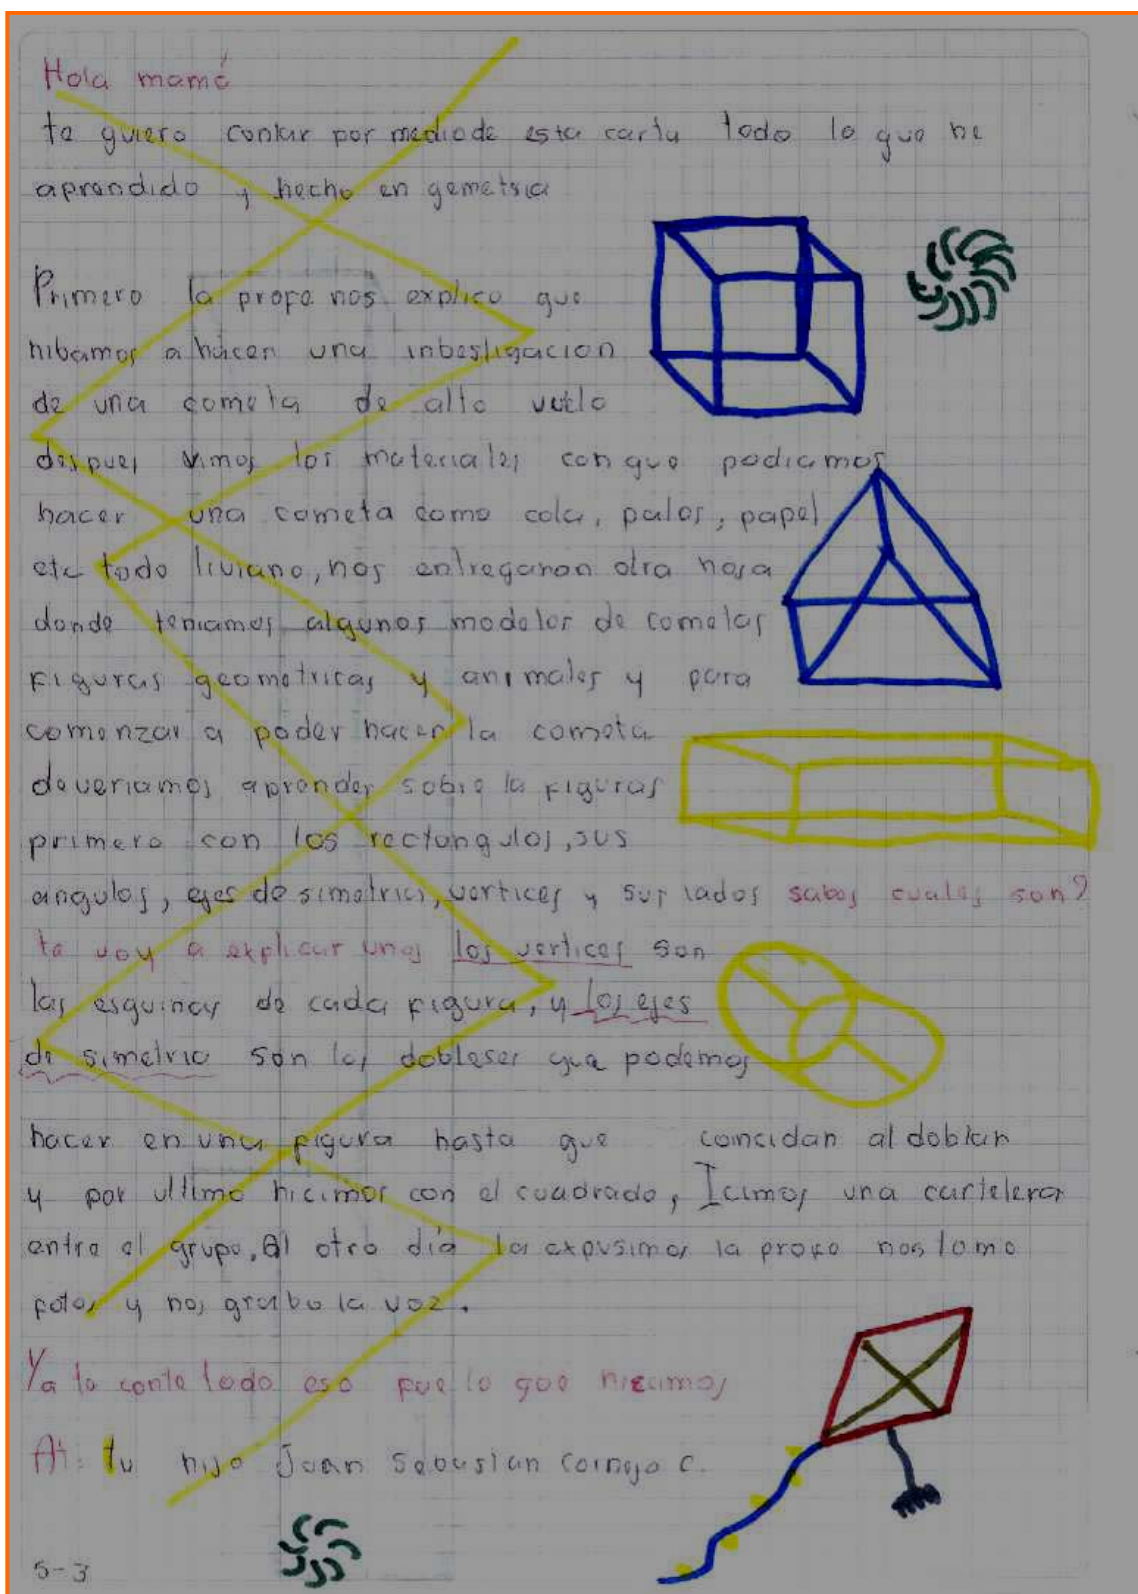 Hola mamá
te quiero contar por medio de esta carta todo lo que he
aprendido y hecho en gemetria
Primero la profe nos explico que
hibamos a hacer una inbestigacion
de una cometa de alto vuelo
despues vimos los materiales con que podiamos
hacer una cometa como cola, palos, papel
etc todo liviano, nos entregaron otra hoja
donde teniamos algunos modelos de cometas
figuras geometricas y animales y para
comenzar a poder hacer la cometa
deveriamos aprender sobre la figuras
primero con los rectangulos, sus
angulos, ejes de simetria, vertices y sus lados sabes cuales son?
te voy a explicar unos los vertices son
las esquinas de cada figura, y los ejes
de simetria son los dobleses que podemos
hacer en una figura hasta que coincidan al doblar
y por ultimo hicimos con el cuadrado, Icimos una cartelera
entre el grupo, Al otro día la expusimos la profe nos tomo
fotos y nos grabo la voz.
Ya te conte todo eso fue lo que hicimos
At: tu hijo Juan Sebastian C.
5-3